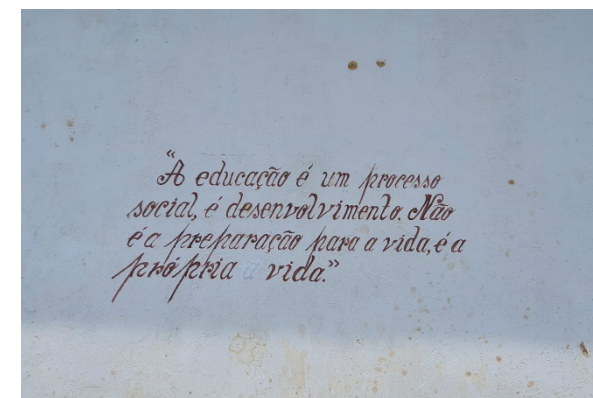 "A educação é um processo
social, é desenvolvimento. Não
é a preparação para a vida, é a
própria a vida."